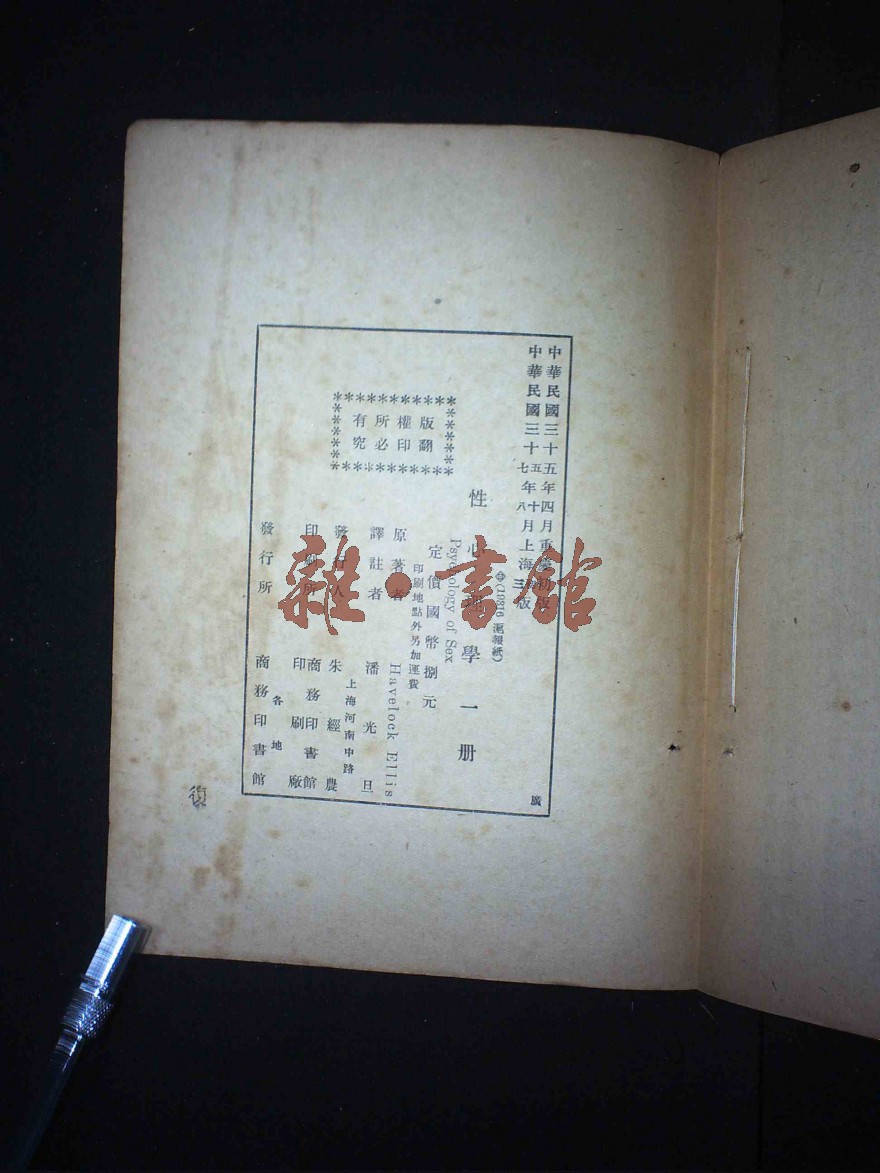 中華民國三十五年四月重慶初版
中華民國三十五七年十八月上海三版
滬報紙)
性心理學 一册
Psychology of Sex
定價國幣捌元
印刷地點外另加運費
原著者 Havelock Ellis
譯註者 潘光旦
上海河南中路
發行人 朱經農
印刷所 商務印書館
印刷廠
各地
發行所 商務印書館
版權所有
翻印必究
雜·書館